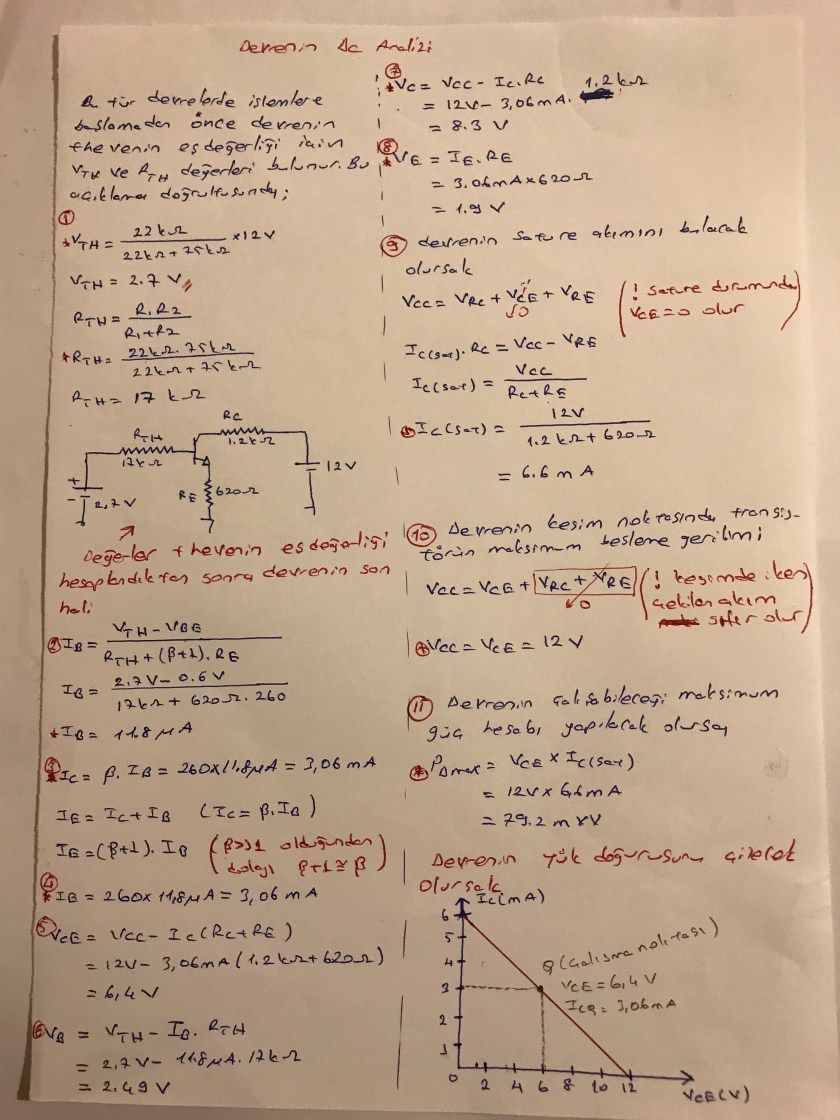 Devrenin Dc Analizi
Bu tür devrelerde işlemlere
başlamadan önce devrenin
thevenin eşdeğerliği için
VTH ve RTH değerleri bulunur. Bu
açıklama doğrultusunda;
①
*VTH = 22kΩ / 22kΩ + 75kΩ × 12V
VTH = 2.7 V
RTH = R1.R2 / R1+R2
*RTH = 22kΩ. 75kΩ / 22kΩ + 75kΩ
RTH = 17 kΩ
RC
1.2kΩ
RTH
17kΩ
12V
RE 620Ω
+
- 2,7V
Değerler thevenin eşdeğerliği
hesaplandıktan sonra devrenin son
hali
② IB = VTH - VBE / RTH + (β+1). RE
IB = 2.7V - 0.6V / 17kΩ + 620Ω. 260
*IB = 11.8 µA
③
*IC = β. IB = 260x11,8µA = 3,06 mA
IE = IC + IB (IC = β.IB)
IE = (β+1). IB (β>>1 olduğundan
dolayı β+1≅β)
④
*IE = 260x 11,8µA = 3,06 mA
⑤ VCE = VCC - IC(RC+RE)
= 12V - 3,06mA (1.2kΩ+620Ω)
= 6,4 V
⑥ VB = VTH - IB. RTH
= 2,7V - 11.8µA. 17kΩ
= 2.49 V
⑦
*VC = VCC - IC.RC
= 12V - 3,06mA. 1.2kΩ
= 8.3 V
⑧
*VE = IE.RE
= 3.06mA x 620Ω
= 1.9 V
⑨ devrenin sature akımını bulacak
olursak
VCC = VRC + VCE + VRE (! Sature durumunda
0 VCE=0 olur)
IC(sat). RC = VCC - VRE
IC(sat) = VCC / RC+RE
*IC(sat) = 12V / 1.2kΩ + 620Ω
= 6.6 mA
⑩ Devrenin kesim noktasında transis-
törün maksimum besleme gerilimi;
VCC = VCE + VRC + VRE (! kesimde iken
0 çekilen akım
sıfır olur)
*VCC = VCE = 12 V
⑪ Devrenin çalışabileceği maksimum
güç hesabı yapılacak olursa;
*PDmax = VCE x IC(sat)
= 12V x 6,6mA
= 79.2 mW
Devrenin yük doğurusunu çizecek
olursak
IC(mA)
6
5
4
3
2
1
0 2 4 6 8 10 12
VCE(V)
Q (Çalışma noktası)
VCE = 6,4 V
ICQ = 3,06mA